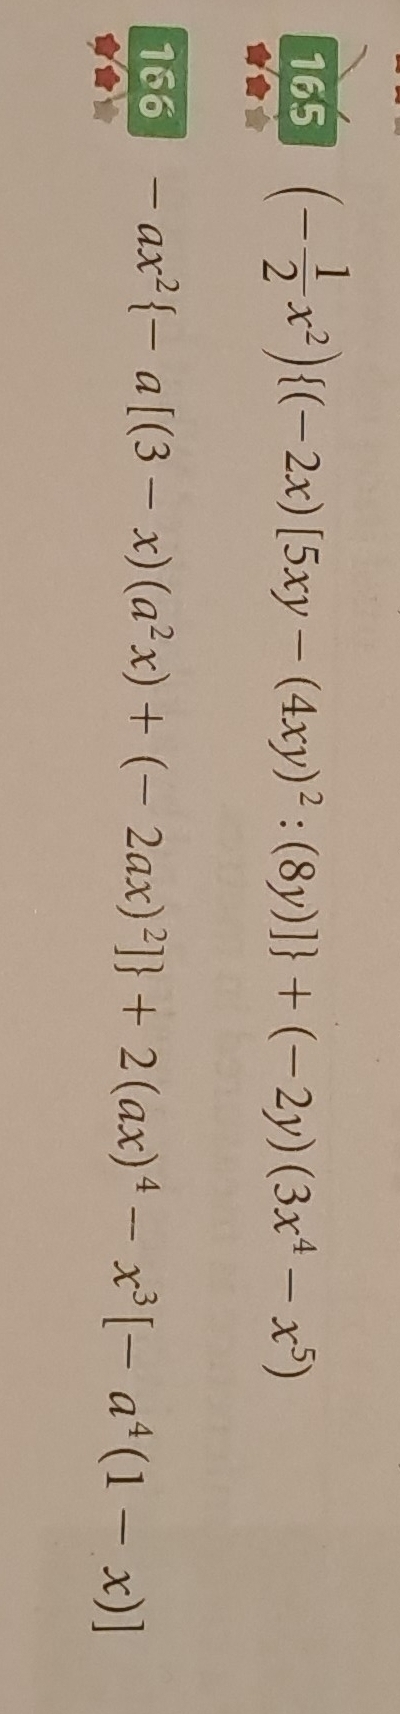 165 (−1/2 x²){(−2x)[5xy − (4xy)² : (8y)]} + (−2y)(3x⁴ − x⁵)
166 − ax²{− a[(3 − x)(a²x) + (− 2ax)²]} + 2(ax)⁴ − x³[− a⁴(1 − x)]